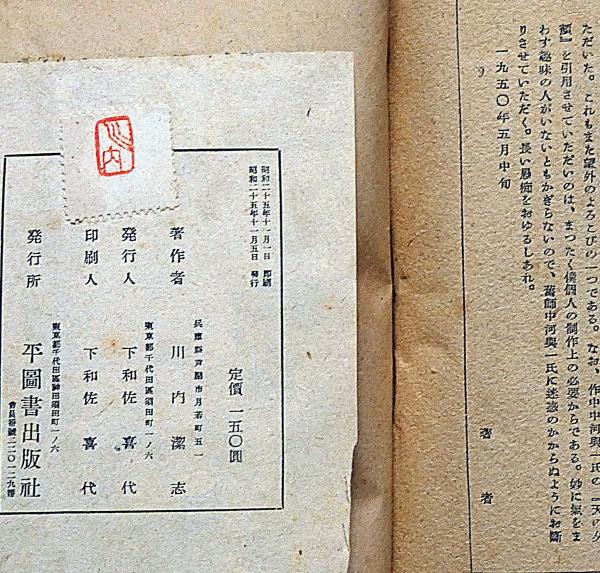 ただいた。これもまた望外のよろこびの一つである。なお、作中中河與一氏の『天の夕
顏』を引用させていただいのは、まつたく僕個人の制作上の必要からである。妙に氣をま
わす趣味の人がいないともかぎらないので、舊師中河與一氏に迷惑のかからぬようにお斷
りさせていただく。長い愚痴をおゆるしあれ。
一九五〇年五月中旬
著者
川内
昭和二十五年十一月一日 印刷
昭和二十五年十一月五日 發行
定價 一五〇圓
兵庫縣芦屋市月若町五一
著作者 川内潔志
東京都千代田區須田町一ノ六
発行人 下和佐喜代
印刷人 下和佐喜代
東京都千代田區神田須田町一ノ六
発行所 平圖書出版社
會員番號二二〇一二九番